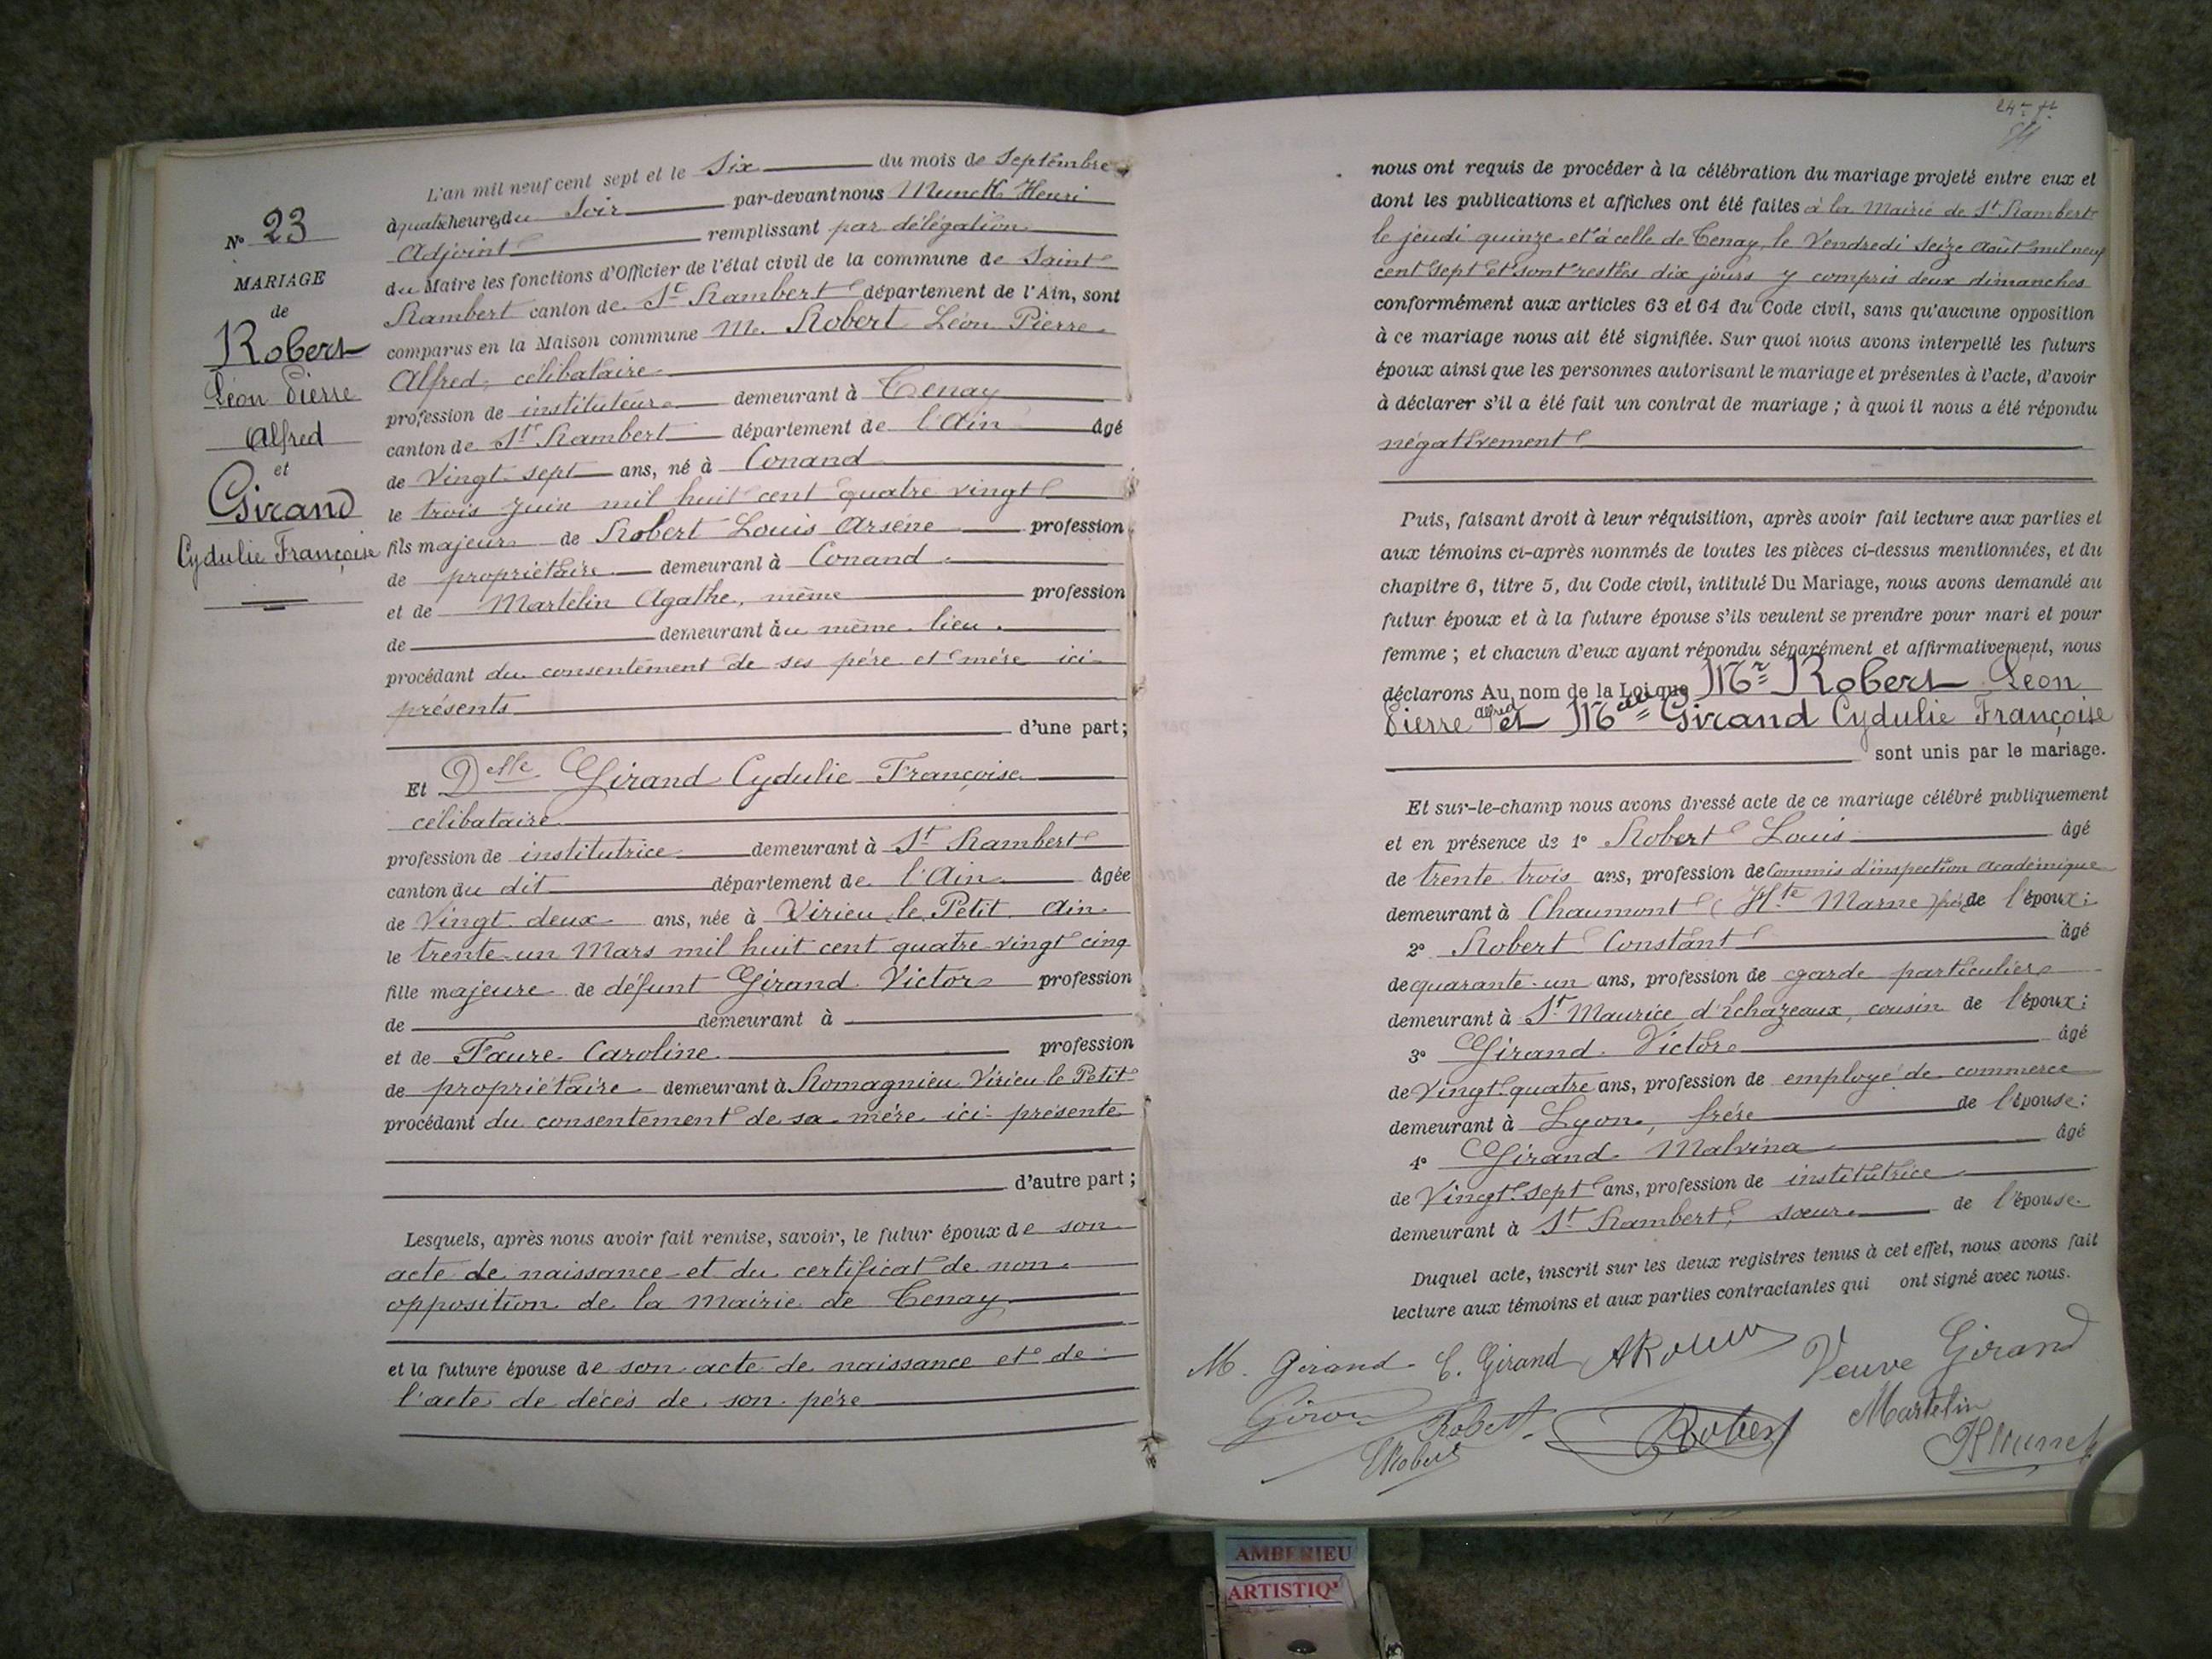 N° 23
MARIAGE
de
Robert
Léon Pierre
Alfred
et
Girand
Cydulie Françoise
L'an mil neuf cent sept et le Six du mois de Septembre
à quatre heures du Soir par-devant nous Munch Henri
Adjoint remplissant par délégation
du Maire les fonctions d'Officier de l'état civil de la commune de Saint
Rambert canton de St Rambert département de l'Ain, sont
comparus en la Maison commune Mr. Robert Léon Pierre
Alfred, célibataire
profession de instituteur demeurant à Tenay
canton de St Rambert département de l'Ain âgé
de Vingt-sept ans, né à Conand
le trois Juin mil huit cent quatre vingt
fils majeur de Robert Louis Arsène profession
de propriétaire demeurant à Conand
et de Martelin Agathe, même profession
de demeurant au même lieu.
procédant du consentement de ses père et mère ici
présents
d'une part;
Et Delle Girand Cydulie Françoise
célibataire
profession de institutrice demeurant à St Rambert
canton du dit département de l'Ain âgée
de Vingt deux ans, née à Virieu le Petit Ain
le trente-un Mars mil huit cent quatre-vingt cinq
fille majeure de défunt Girand Victor profession
de demeurant à
et de Faure Caroline profession
de propriétaire demeurant à Romagnieu Virieu-le-Petit
procédant du consentement de sa mère ici présente
d'autre part;
Lesquels, après nous avoir fait remise, savoir, le futur époux de son
acte de naissance et du certificat de non
opposition de la Mairie de Tenay
et la future épouse de son acte de naissance et de
l'acte de décès de son père
24 - ft
nous ont requis de procéder à la célébration du mariage projeté entre eux et
dont les publications et affiches ont été faites à la Mairie de St Rambert
le jeudi quinze et à celle de Tenay le Vendredi seize Août mil neuf
cent sept et sont restées dix jours y compris deux dimanches
conformément aux articles 63 et 64 du Code civil, sans qu'aucune opposition
à ce mariage nous ait été signifiée. Sur quoi nous avons interpellé les futurs
époux ainsi que les personnes autorisant le mariage et présentes à l'acte, d'avoir
à déclarer s'il a été fait un contrat de mariage; à quoi il nous a été répondu
négativement
Puis, faisant droit à leur réquisition, après avoir fait lecture aux parties et
aux témoins ci-après nommés de toutes les pièces ci-dessus mentionnées, et du
chapitre 6, titre 5, du Code civil, intitulé Du Mariage, nous avons demandé au
futur époux et à la future épouse s'ils veulent se prendre pour mari et pour
femme; et chacun d'eux ayant répondu séparément et affirmativement, nous
déclarons Au nom de la Loi que Mr Robert Léon
Pierre Alfred et Melle Girand Cydulie Françoise
sont unis par le mariage.
Et sur-le-champ nous avons dressé acte de ce mariage célébré publiquement
et en présence de 1° Robert Louis âgé
de trente trois ans, profession de Commis d'inspection académique
demeurant à Chaumont (Hte Marne) de l'époux;
2° Robert Constant âgé
de quarante-un ans, profession de garde particulier
demeurant à St Maurice d'Echazeaux, cousin de l'époux;
3° Girand Victor âgé
de Vingt-quatre ans, profession de employé de commerce
demeurant à Lyon, frère de l'épouse;
4° Girand Malvina âgé
de Vingt-sept ans, profession de institutrice
demeurant à St Rambert, sœur de l'épouse
Duquel acte, inscrit sur les deux registres tenus à cet effet, nous avons fait
lecture aux témoins et aux parties contractantes qui ont signé avec nous.
M. Girand C. Girand Veuve Girand
Robert Robert Martelin
LRobert HMunch
AMBERIEU
ARTISTIQ'